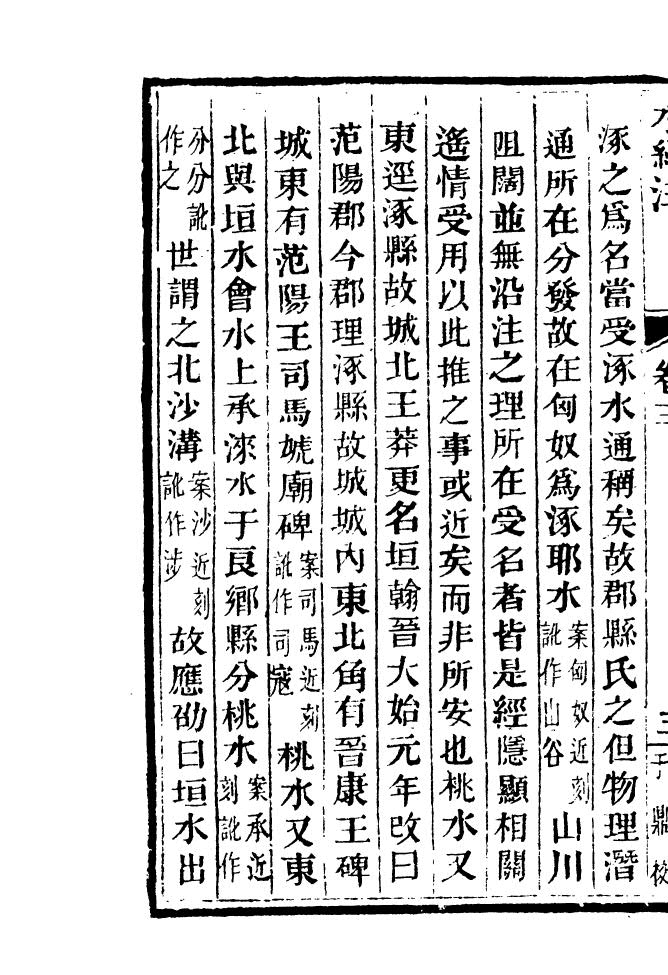 涿之爲名當受涿水通稱矣故郡縣氏之但物理潛
通所在分發故在匈奴爲涿耶水案匈奴近刻訛作山谷山川
阻闊並無沿注之理所在受名者皆是經隱顯相關
遙情受用以此推之事或近矣而非所安也桃水又
東逕涿縣故城北王莽更名垣翰晉大始元年改曰
范陽郡今郡理涿縣故城城內東北角有晉康王碑
城東有范陽王司馬虓廟碑案司馬近刻訛作司寇桃水又東
北與垣水會水上承淶水于良鄉縣分桃水案承近刻訛作
分分訛作之世謂之北沙溝案沙近刻訛作涉故應劭曰垣水出